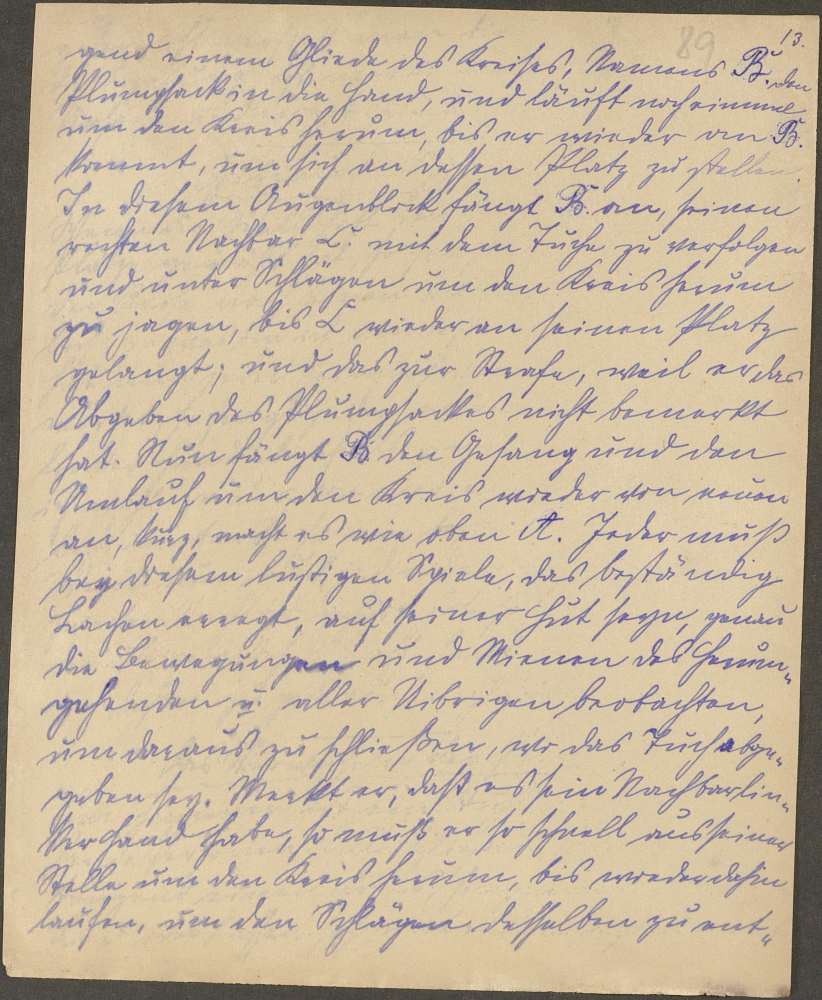 89
13.
gend einem Gliede des Kreises, Namens B. den
Plumpsack in die Hand, und läuft noch einmal
um den Kreis herum, bis er wieder an B.
kommt, um sich an dessen Platz zu stellen.
In diesem Augenblick fängt B. an, seinen
rechten Nachbar C. mit dem Tuche zu verfolgen
und unter Schlägen um den Kreis herum
zu jagen, bis C wieder an seinen Platz
gelangt; und das zur Strafe, weil er das
Abgeben des Plumpsackes nicht bemerkt
hat. Nun fängt B. den Gesang und den
Umlauf um den Kreis wieder von neuen
an, kurz, macht es wie oben A. Jeder muß
bey diesem lustigen Spiele, das beständig
Lachen erregt, auf seiner Hut seyn, genau
die Bewegungen und Mienen des herum-
gehenden u. aller Uibrigen beobachten,
um daraus zu schließen, wo das Tuch abge-
geben sey. Merkt er, daß es sein Nachbar lin-
ker Hand habe, so muß er so schnell aus seiner
Stelle um den Kreis herum, bis wieder dahin
laufen, um den Schlägen desselben zu ent-